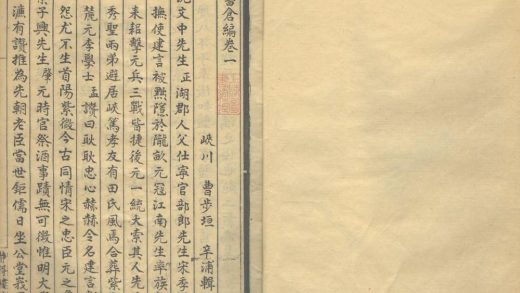 倉編卷一
峽川 曹步垣 辛浦輯
文中先生正湖郡人父仕寧官部郎先生宋季
撫使建言被黜隱於隴畝元冠江南先生率族
擊元兵三戰皆捷後元一統大索其人先
秀聖雨弟避居峽篤孝友有田氏風焉合葬紫
麓元李學士孟讚曰耿耿忠心赫赫令名建言
怨尤不生首陽紫微今古同情宋之忠臣元之
子興先生肇元時官祭酒事蹟無可徵惟明大
漁有讚推為先朝老臣當世鉅儒日坐公堂